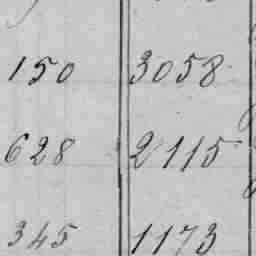 150 3058
628 2115
345 1173